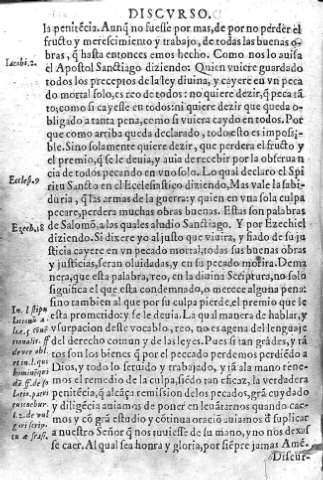 DISCVRSO.
la penitẽcia. Aunq̃ no fuesse por mas, de por no perder el
fructo y merescimiento y trabajo, de todas las buenas o-
bras, q̃ hasta entonces emos hecho. Como nos lo auisa
Iacobi. 2.
el Apostol Sanctiago diziendo. Quien vuiere guardado
todos los preceptos de la ley diuina, y cayere en vn peca
do mortal solo, es reo de todos: no quiere dezir, q̃ peca tã
to; como si cayesse en todos: ni quiere dezir que queda o-
bligado a tanta pena, como si vuiera caydo en todos. Por
que como arriba queda declarado, todo esto es imposi-
ble. Sino solamente quiere dezir, que perdera el fructo y
el premio, q̃ se le deuia, y auia de recebir por la obserua n
cia de todos pecando en vno solo. Lo qual declaro el Spi
Eccless. 9
ritu Sancto en el Ecclesiastico diziendo, Mas vale la sabi-
duria, q̃ las armas de la guerra: y quien en vna sola culpa
pecare, perdera muchas obras buenas. Estas son palabras
Ezech. 18
de Salomõ, a las quales aludio Sanctiago. Y por Ezechiel
diziendo. Si dixere yo al justo que viuira, y fiado de su ju
sticia cayere en vn pecado mortal, todas sus buenas obras
y justicias, seran oluidadas, y en su pecado morira. Dema
nera, que esta palabra, reo, en la diuina Scriptura, no solo
significa el que esta condemnado, o merece alguna pena:
sino tambien al que por su culpa pierde, el premio que le
esta prometido: y se le deuia. La qual manera de hablar, y
vsurpacion deste vocablo, reo, no es agena del lenguaje
del derecho comun y de las leyes. Pues si tan grãdes, y tã
tos son los bienes q̃ por el peccado perdemos perdiẽdo a
Dios, y todo lo seruido y trabajado, y tã a la mano rene-
mos el remedio de la culpa, siẽdo tan eficaz, la verdadera
penitẽcia, q̃ alcãça remission de los pecados, grã cuydado
y diligẽcia auiamos de poner en leuãtarnos quando cae-
mos y cõ grã estudio y cõtinua oraciõ auiamos d̃ suplicar
a nuestro Señor q̃ nos tuuiesse de su mano, y no nos dexas
se caer. Al qual sea honra y gloria, por siẽpre jamas Amẽ.
Discur-